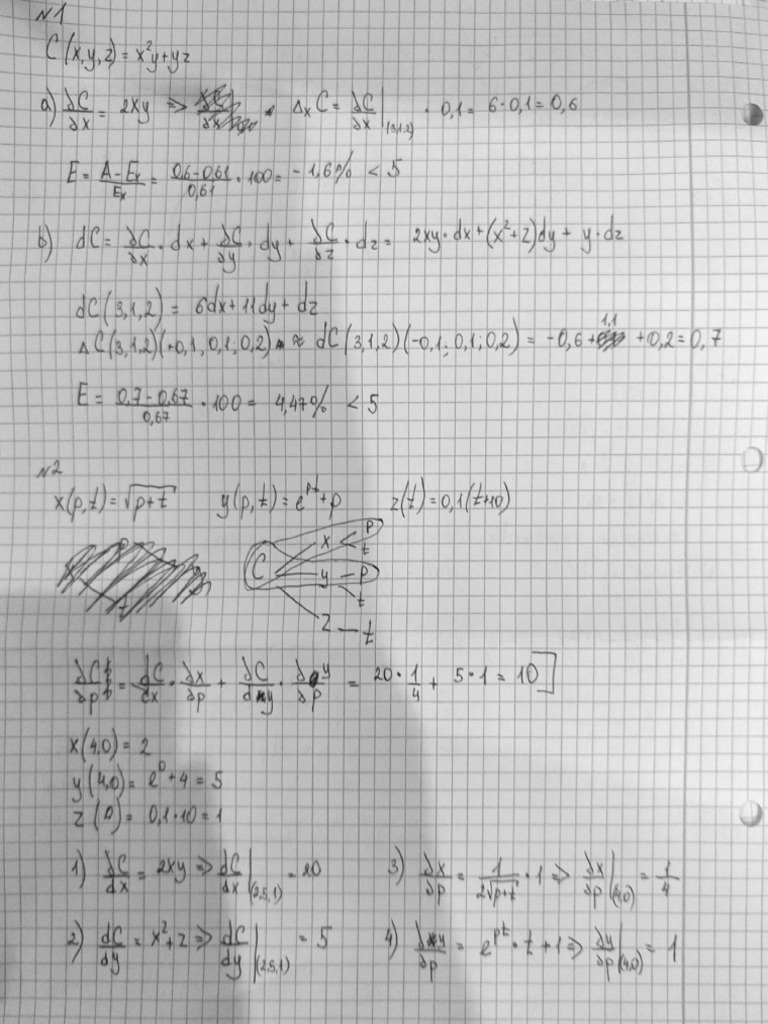 №1
C(x,y,z) = x²y+yz
a) ∂C/∂x = 2xy ⇒ Δₓ C = ∂C/∂x |(3,1,2) · 0,1 = 6·0,1 = 0,6
E = (A-Eₓ)/Eₓ = (0,6-0,61)/0,61 · 100 = -1,6% < 5
b) dC = ∂C/∂x · dx + ∂C/∂y · dy + ∂C/∂z · dz = 2xy·dx+(x²+z)dy + y·dz
dC(3,1,2) = 6dx+11dy+dz
ΔC(3,1,2)(-0,1, 0,1, 0,2) ≈ dC(3,1,2)(-0,1; 0,1; 0,2) = -0,6+1,1+0,2=0,7
E = (0,7-0,67)/0,67 · 100 = 4,47% < 5
№2
x(p,t) = √(p+t) y(p,t) = e^(pt)+p z(t) = 0,1(t+10)
C x p t
y p t
z t
∂C/∂p = dC/dx · ∂x/∂p + ∂C/dy · ∂y/∂p = 20·1/4 + 5·1 = 10
x(4,0) = 2
y(4,0) = e⁰+4 = 5
z(0) = 0,1·10 = 1
1) dC/dx = 2xy ⇒ dC/dx |(2,5,1) = 20 3) ∂x/∂p = 1/(2√(p+t)) · 1 ⇒ ∂x/∂p |(4,0) = 1/4
2) dC/dy = x²+z ⇒ dC/dy |(2,5,1) = 5 4) ∂y/∂p = e^(pt)·t+1 ⇒ ∂y/∂p |(4,0) = 1